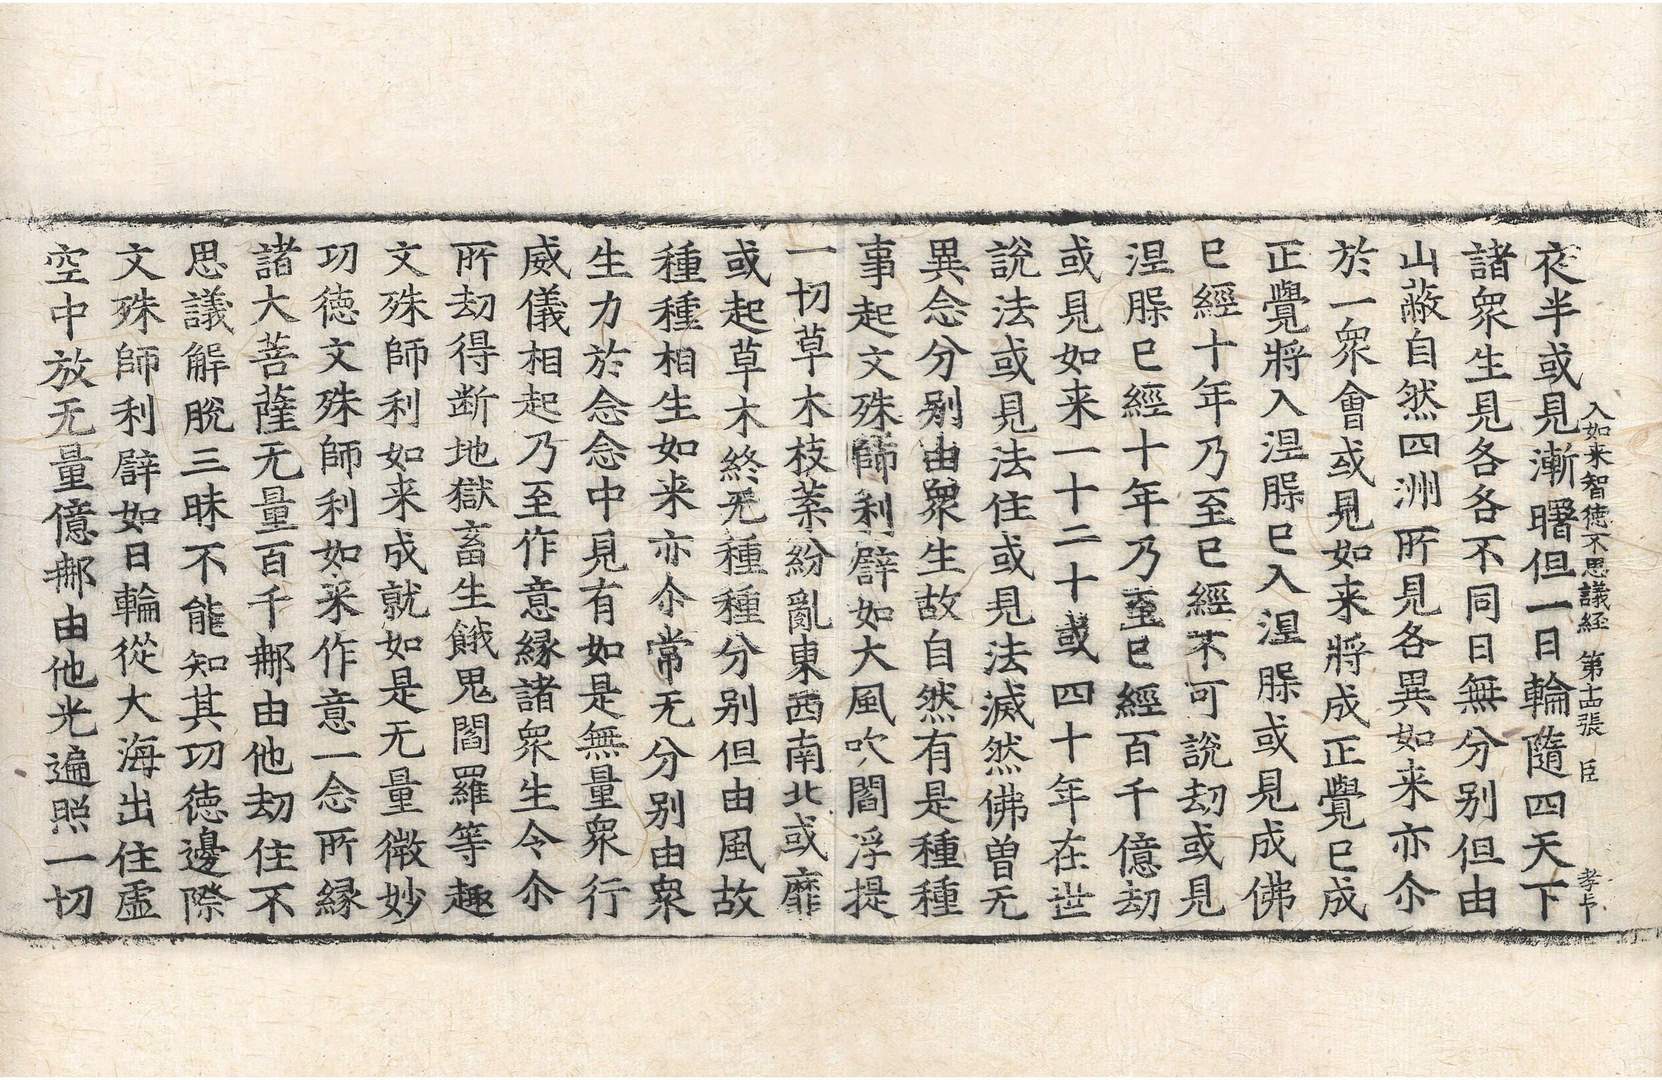 入如来智徳不思議経 第十四張 臣 孝長
夜半或見漸曙但一日輪隨四天下
諸衆生見各各不同日無分别但由
山蔽自然四洲所見各異如来亦尒
於一衆會或見如来將成正覺已成
正覺將入涅膍已入涅膍或見成佛
已經十年乃至已經不可說劫或見
涅膍已經十年乃至已經百千億劫
或見如来一十二十或四十年在世
說法或見法住或見法滅然佛曽无
異念分别由衆生故自然有是種種
事起文殊師利譬如大風吹閻浮提
一切草木枝葉紛亂東西南北或靡
或起草木終无種種分别但由風故
種種相生如来亦尒常无分别由衆
生力於念念中見有如是無量衆行
威儀相起乃至作意縁諸衆生令尒
所劫得断地獄畜生餓鬼閻羅等趣
文殊師利如来成就如是无量微妙
功徳文殊師利如来作意一念所縁
諸大菩薩无量百千那由他劫住不
思議解脫三昧不能知其功徳邊際
文殊師利譬如日輪從大海出住虚
空中放无量億那由他光遍照一切